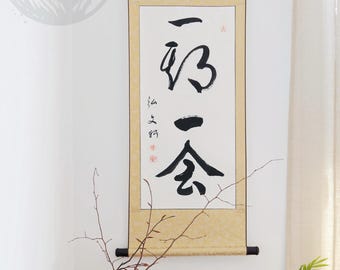 一期一会
弘文